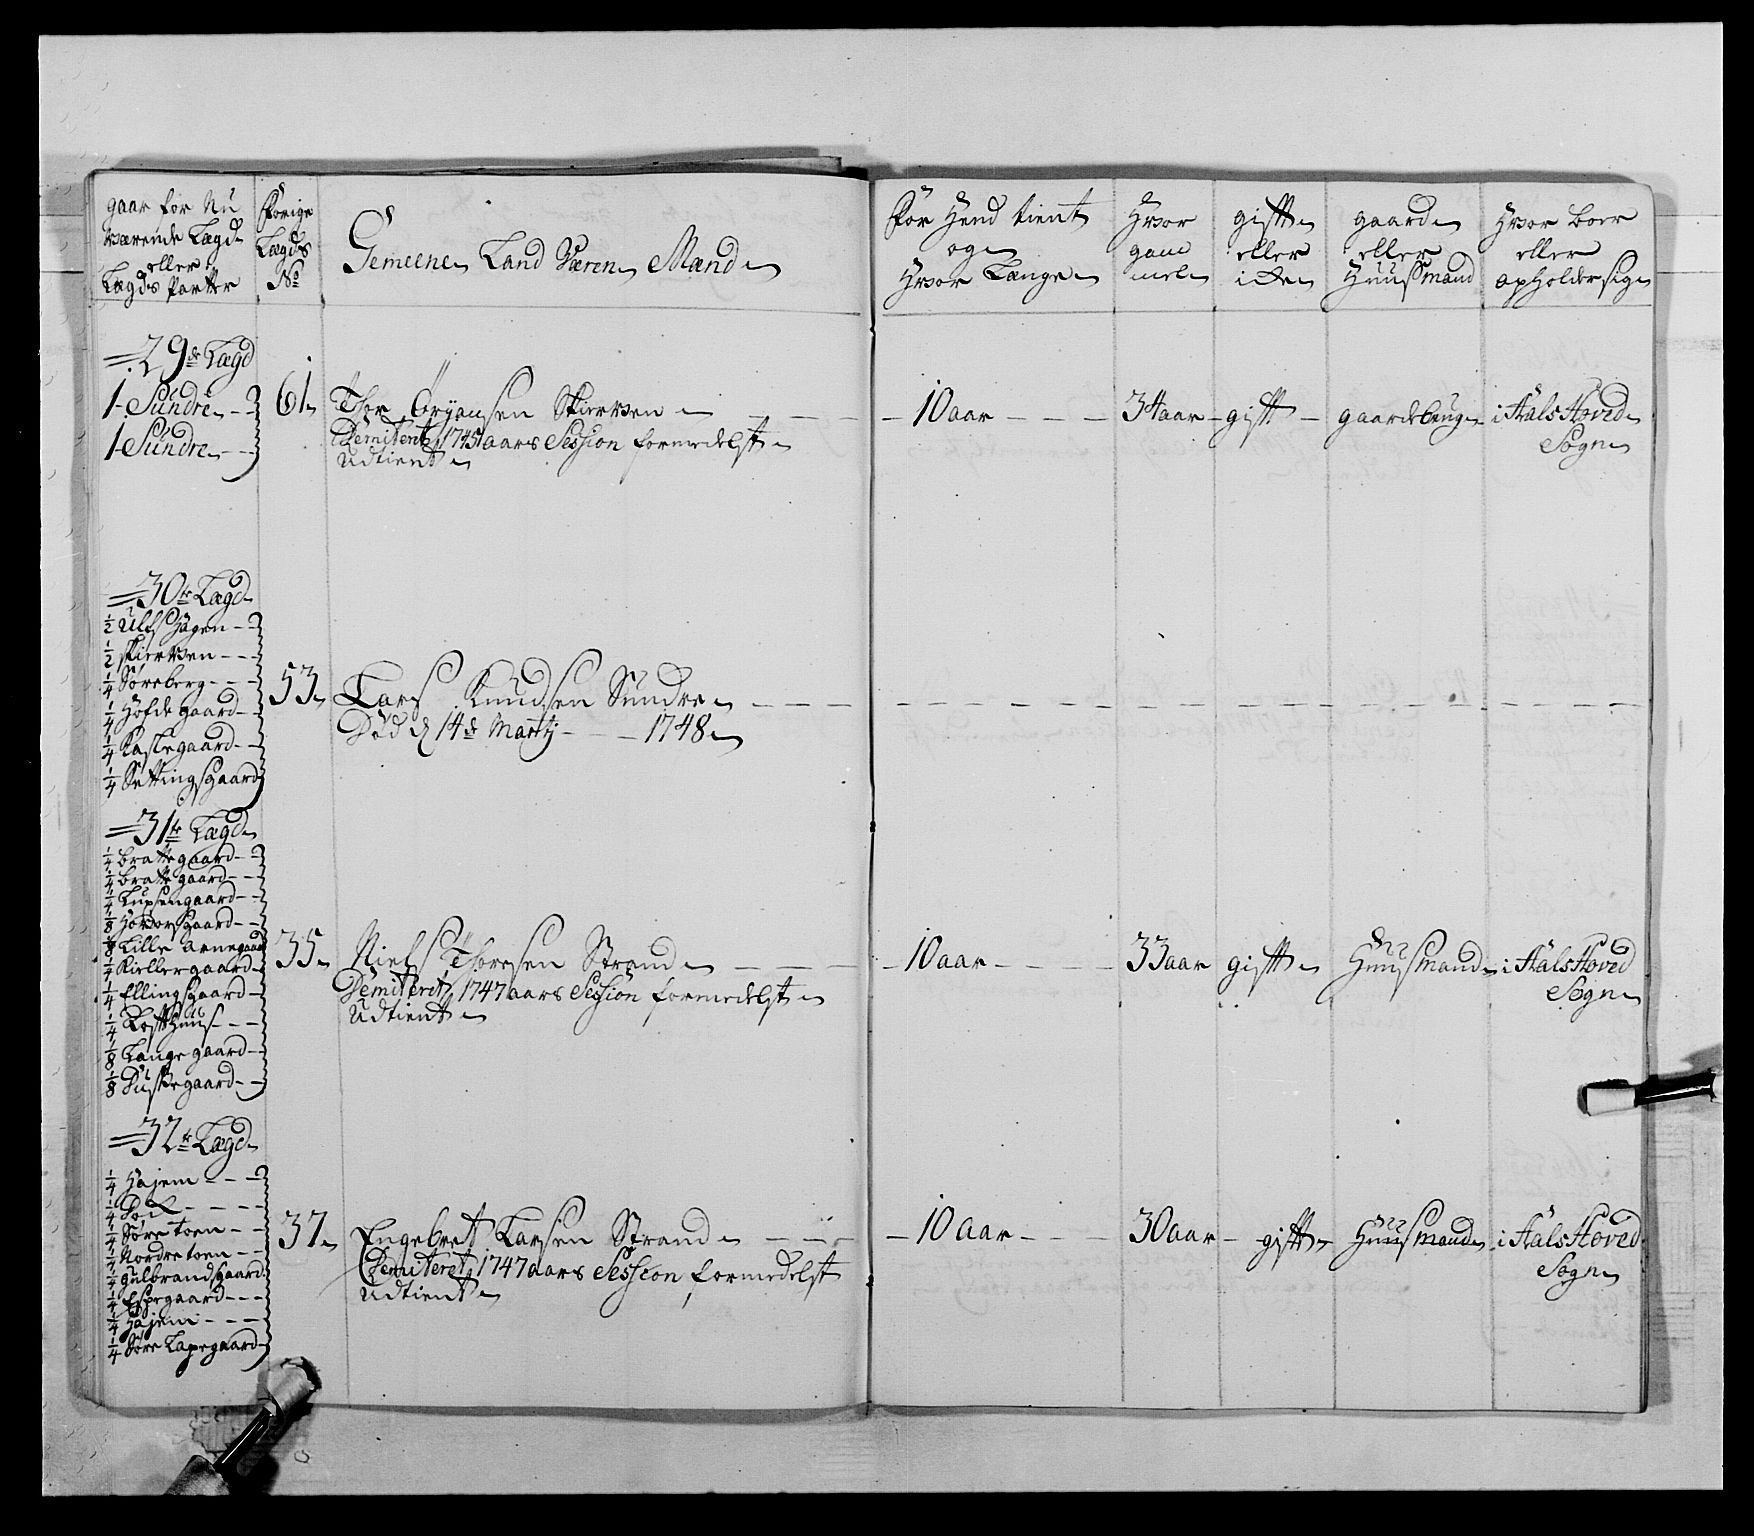 gaar for Nu
værende Lægd
eller
Lægds Parter
Forige
Lægds
No
Gemeene Land Værens Mænd
För Hend tient
og
Hvor Længe
Hvor
gam
mel
gifft
eller
icke
gaard
eller
Huusmand
Hvor boer
eller
opholder sig
29de Lægd
1 Sundre
1 Sundre
61
Thor Örjansen Skierven
Demiteret 1745 aars Session formedelst
Udtient
10 aar
34 aar
gifft
gaardebrug
i Aals Hoved
Sogn
30te Lægd
1/2 Ulfs Hagen
1/2 Skierven
1/4 Søreberg
1/4 Hofdegaard
1/4 Kaslegaard
1/4 Settingsgaard
53
Lars Knudsen Sundre
Død d 14de Martij 1748
31te Lægd
1/4 brattegaard
1/4 brattegaard
1/4 Lupsengaard
1/8 Horvorsgaard
1/8 Lille Arnegaard
1/4 Kiellergaard
1/4 Ellingsgaard
1/4 Loffthuus
1/8 Langegaard
1/8 Duskegaard
35
Niels Thoresen Strand
Demiteret 1747 aars Session formedelst
Udtient
10 aar
33 aar
gifft
Huusmand
i Aals Hoved
Sogn
32te Lægd
1/4 Hajem
1/4
1/4 Søre toen
1/4 Nordre toen
1/4 gulbrandsgaard
1/4 Espegaard
1/4 Hajem
1/4 Søre Lapegaard
37
Engebret Larsen Strand
Demiteret 1747 aars Session formedelst
Udtient
10 aar
30 aar
gifft
Huusmand
i Aals Hoved
Sogn